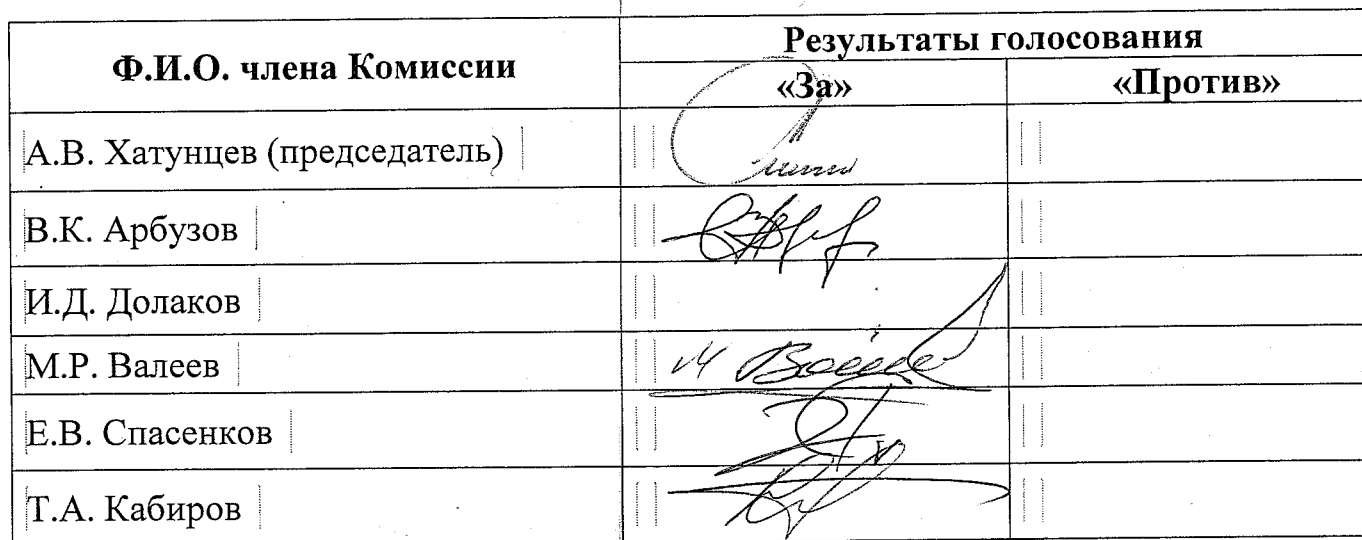 Ф.И.О. члена Комиссии
Результаты голосования
«За»
«Против»
А.В. Хатунцев (председатель)
В.К. Арбузов
И.Д. Долаков
М.Р. Валеев
Е.В. Спасенков
Т.А. Кабиров